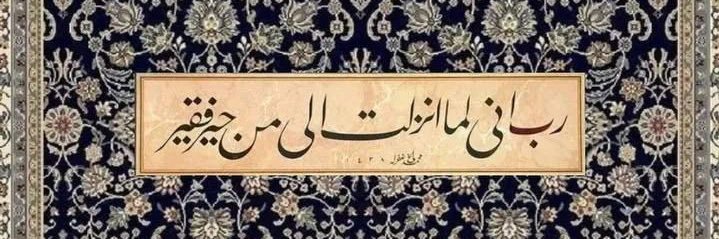 رب انی لما انزلت الی من خیر فقیر